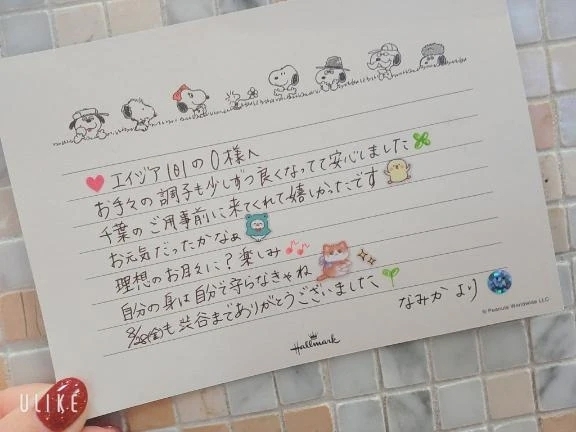 エイジア101のO様へ
お手々の調子も少しずつ良くなってて安心しました
千葉のご用事前に来てくれて嬉しかったです
お元気だったかなぁ
理想のお耳に?楽しみ
自分の身は自分で守らなきゃね
8/28(金)も渋谷までありがとうございました
なみか より
© Peanuts Worldwide LLC
Hallmark
ULIKE